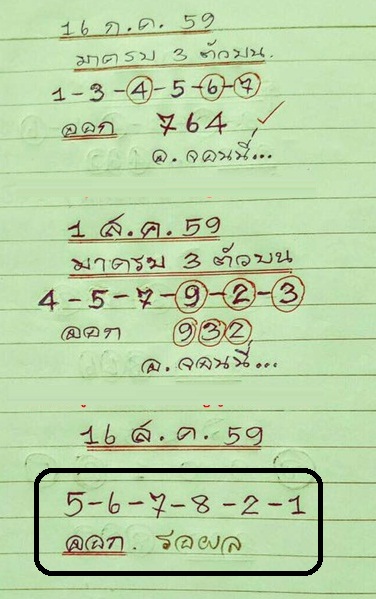 16 ก.ค. 59
มาตรบ 3 ตัวบน.
1-3-4-5-6-7
ออก 764 ✓
อ.จอนนี่...
1 ส.ค. 59
มาตรบ 3 ตัวบน
4-5-7-9-2-3
ออก 932
อ.จอนนี่...
16 ส.ค. 59
5-6-7-8-2-1
ออก. รอผล